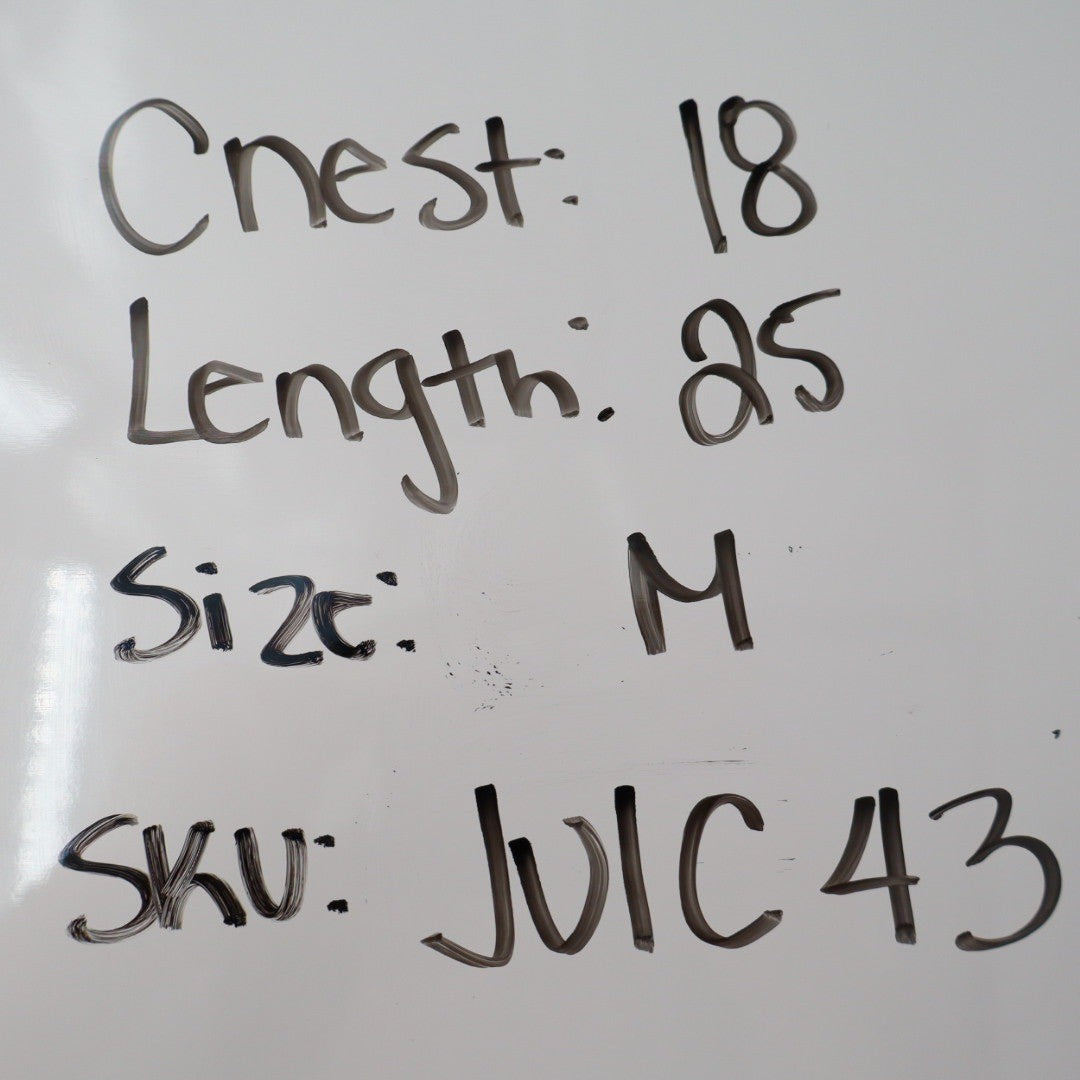 Chest: 18
Length: 25
Size: M
SKU: JUIC43